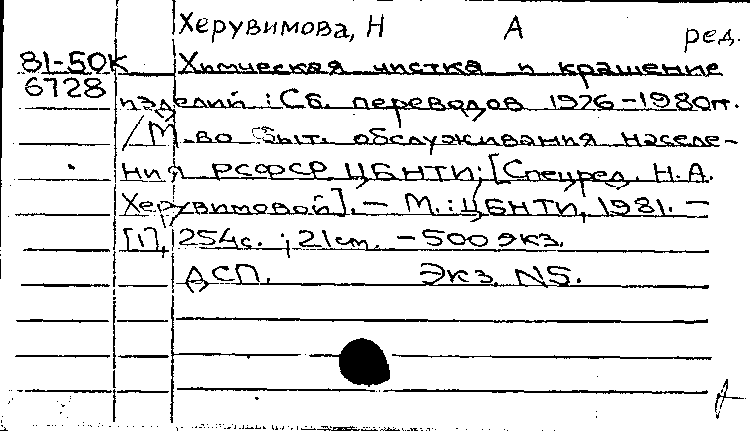 Херувимова, Н А ред.
81-50К Химическая чистка и крашение
6728 изделий : Сб. переводов 1976-1980гг.
/М-во быт. обслуживания населе-
ния РСФСР. ЦБНТИ; [Спецред. Н.А.
Херувимовой]. – М. : ЦБНТИ, 1981. –
[1], 254с. ; 21см. – 500 экз.
ДСП. Экз. N5.